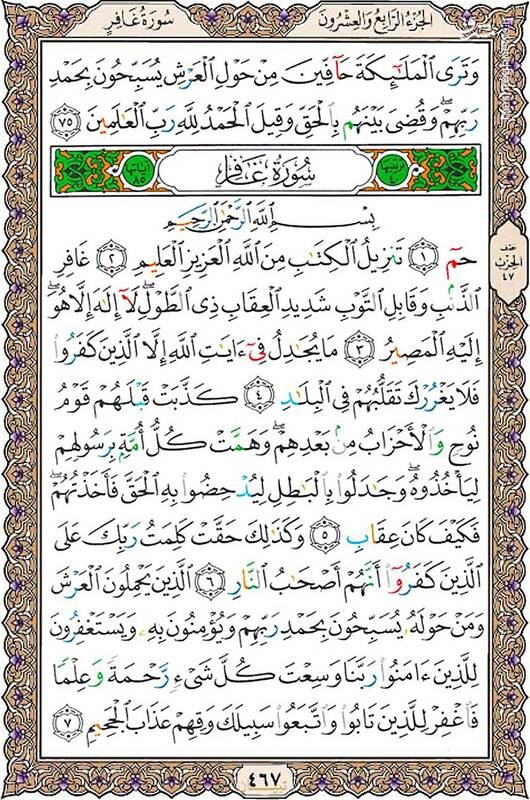 سُورَةُ غَافِرٍ
الجُزْءُ الرَّابِعُ وَالعِشْرُونَ
وَتَرَى ٱلْمَلَٰٓئِكَةَ حَآفِّينَ مِنْ حَوْلِ ٱلْعَرْشِ يُسَبِّحُونَ بِحَمْدِ
رَبِّهِمْ ۖ وَقُضِىَ بَيْنَهُم بِٱلْحَقِّ وَقِيلَ ٱلْحَمْدُ لِلَّهِ رَبِّ ٱلْعَٰلَمِينَ ٧٥
سُورَةُ غَافِرٍ
بِسْمِ ٱللَّهِ ٱلرَّحْمَٰنِ ٱلرَّحِيمِ
حمٓ ١ تَنزِيلُ ٱلْكِتَٰبِ مِنَ ٱللَّهِ ٱلْعَزِيزِ ٱلْعَلِيمِ ٢ غَافِرِ
ٱلذَّنۢبِ وَقَابِلِ ٱلتَّوْبِ شَدِيدِ ٱلْعِقَابِ ذِى ٱلطَّوْلِ ۖ لَآ إِلَٰهَ إِلَّا هُوَ ۖ
إِلَيْهِ ٱلْمَصِيرُ ٣ مَا يُجَٰدِلُ فِىٓ ءَايَٰتِ ٱللَّهِ إِلَّا ٱلَّذِينَ كَفَرُوا۟
فَلَا يَغْرُرْكَ تَقَلُّبُهُمْ فِى ٱلْبِلَٰدِ ٤ كَذَّبَتْ قَبْلَهُمْ قَوْمُ
نُوحٍ وَٱلْأَحْزَابُ مِنۢ بَعْدِهِمْ ۖ وَهَمَّتْ كُلُّ أُمَّةٍۭ بِرَسُولِهِمْ
لِيَأْخُذُوهُ ۖ وَجَٰدَلُوا۟ بِٱلْبَٰطِلِ لِيُدْحِضُوا۟ بِهِ ٱلْحَقَّ فَأَخَذْتُهُمْ ۖ
فَكَيْفَ كَانَ عِقَابِ ٥ وَكَذَٰلِكَ حَقَّتْ كَلِمَتُ رَبِّكَ عَلَى
ٱلَّذِينَ كَفَرُوٓا۟ أَنَّهُمْ أَصْحَٰبُ ٱلنَّارِ ٦ ٱلَّذِينَ يَحْمِلُونَ ٱلْعَرْشَ
وَمَنْ حَوْلَهُۥ يُسَبِّحُونَ بِحَمْدِ رَبِّهِمْ وَيُؤْمِنُونَ بِهِۦ وَيَسْتَغْفِرُونَ
لِلَّذِينَ ءَامَنُوا۟ رَبَّنَا وَسِعْتَ كُلَّ شَىْءٍ رَّحْمَةً وَعِلْمًا
فَٱغْفِرْ لِلَّذِينَ تَابُوا۟ وَٱتَّبَعُوا۟ سَبِيلَكَ وَقِهِمْ عَذَابَ ٱلْجَحِيمِ ٧
الحِزْب
٤٧
٤٦٧